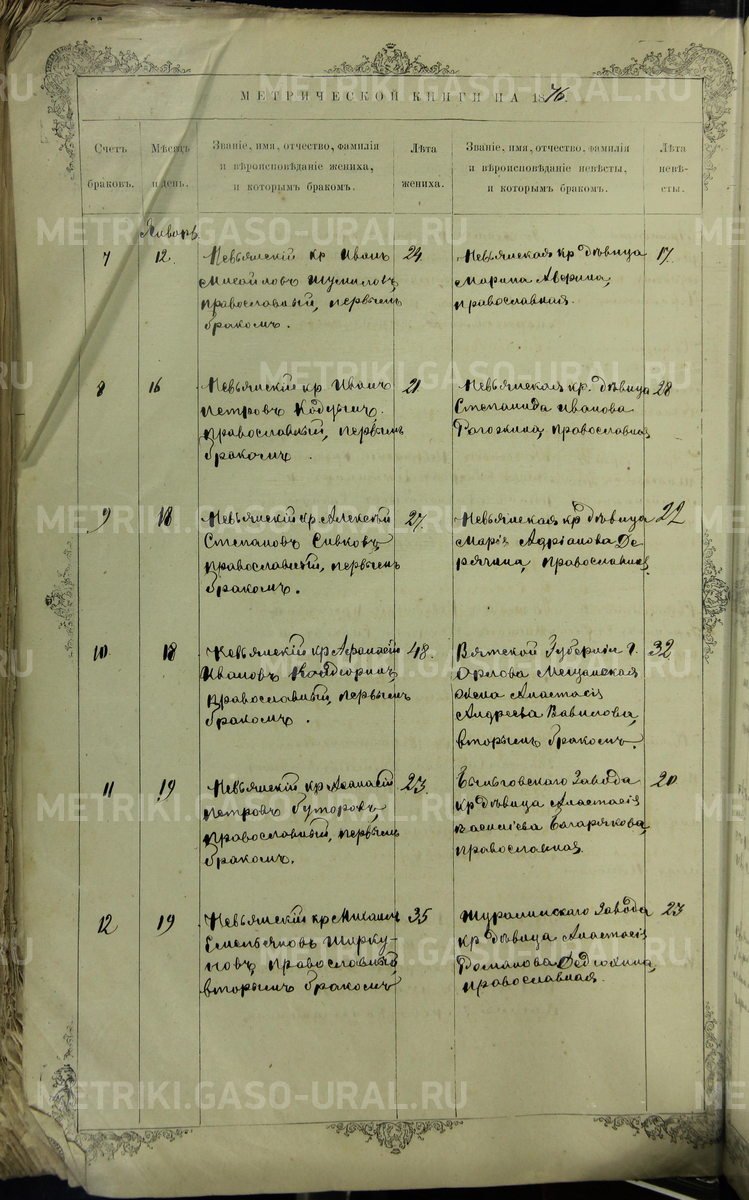 МЕТРИЧЕСКОЙ КНИГИ НА 1876.
Счетъ браковъ.
Мѣсяцъ и день.
Званіе, имя, отчество, фамилія
и вѣроисповѣданіе жениха,
и которымъ бракомъ.
Лѣта жениха.
Званіе, имя, отчество, фамилія
и вѣроисповѣданіе невѣсты,
и которымъ бракомъ.
Лѣта невѣ-
сты.
Январь
7 12.
Невьямскій кр Иванъ
Михайловъ Шумиловъ,
православный, первымъ
бракомъ.
24
Невьямская кр дѣвица
Марина Аверина,
православная.
17.
8 16
Невьямскій кр Иванъ
Петровъ
православный, первымъ
бракомъ.
21
Невьямская кр. дѣвица
Степанида Иванова
Рагожина, православная
28
9 18
Невьямскій кр Алексѣй
Степановъ Сивковъ,
православный, первымъ
бракомъ.
27.
Невьямская кр дѣвица
Марія Адріанова Де-
рячина, православная.
22
10. 18
Невьямскій кр Афанасій
Ивановъ
православный, первымъ
бракомъ.
48.
Вятской Губерніи г.
Орлова Мещанская
жена Анастасія
Андреева Вавилова,
вторымъ бракомъ.
32
11 19
Невьямскій кр Афанасій
Петровъ
православный, первымъ
бракомъ.
23.
Завода
кр дѣвица Анастасія
Василіева Багарякова,
православная.
20
12 19
Невьямскій кр Михаилъ
Емельяновъ Ширку-
новъ, православный,
вторымъ бракомъ
35
Шуралинскаго Завода
кр дѣвица Анастасія
Романова Дедюхина,
православная.
23
METRIKI.GASO-URAL.RU